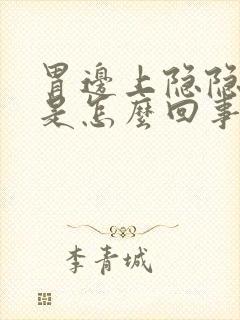 胃邊上隐隐
是怎麼回事
李青城